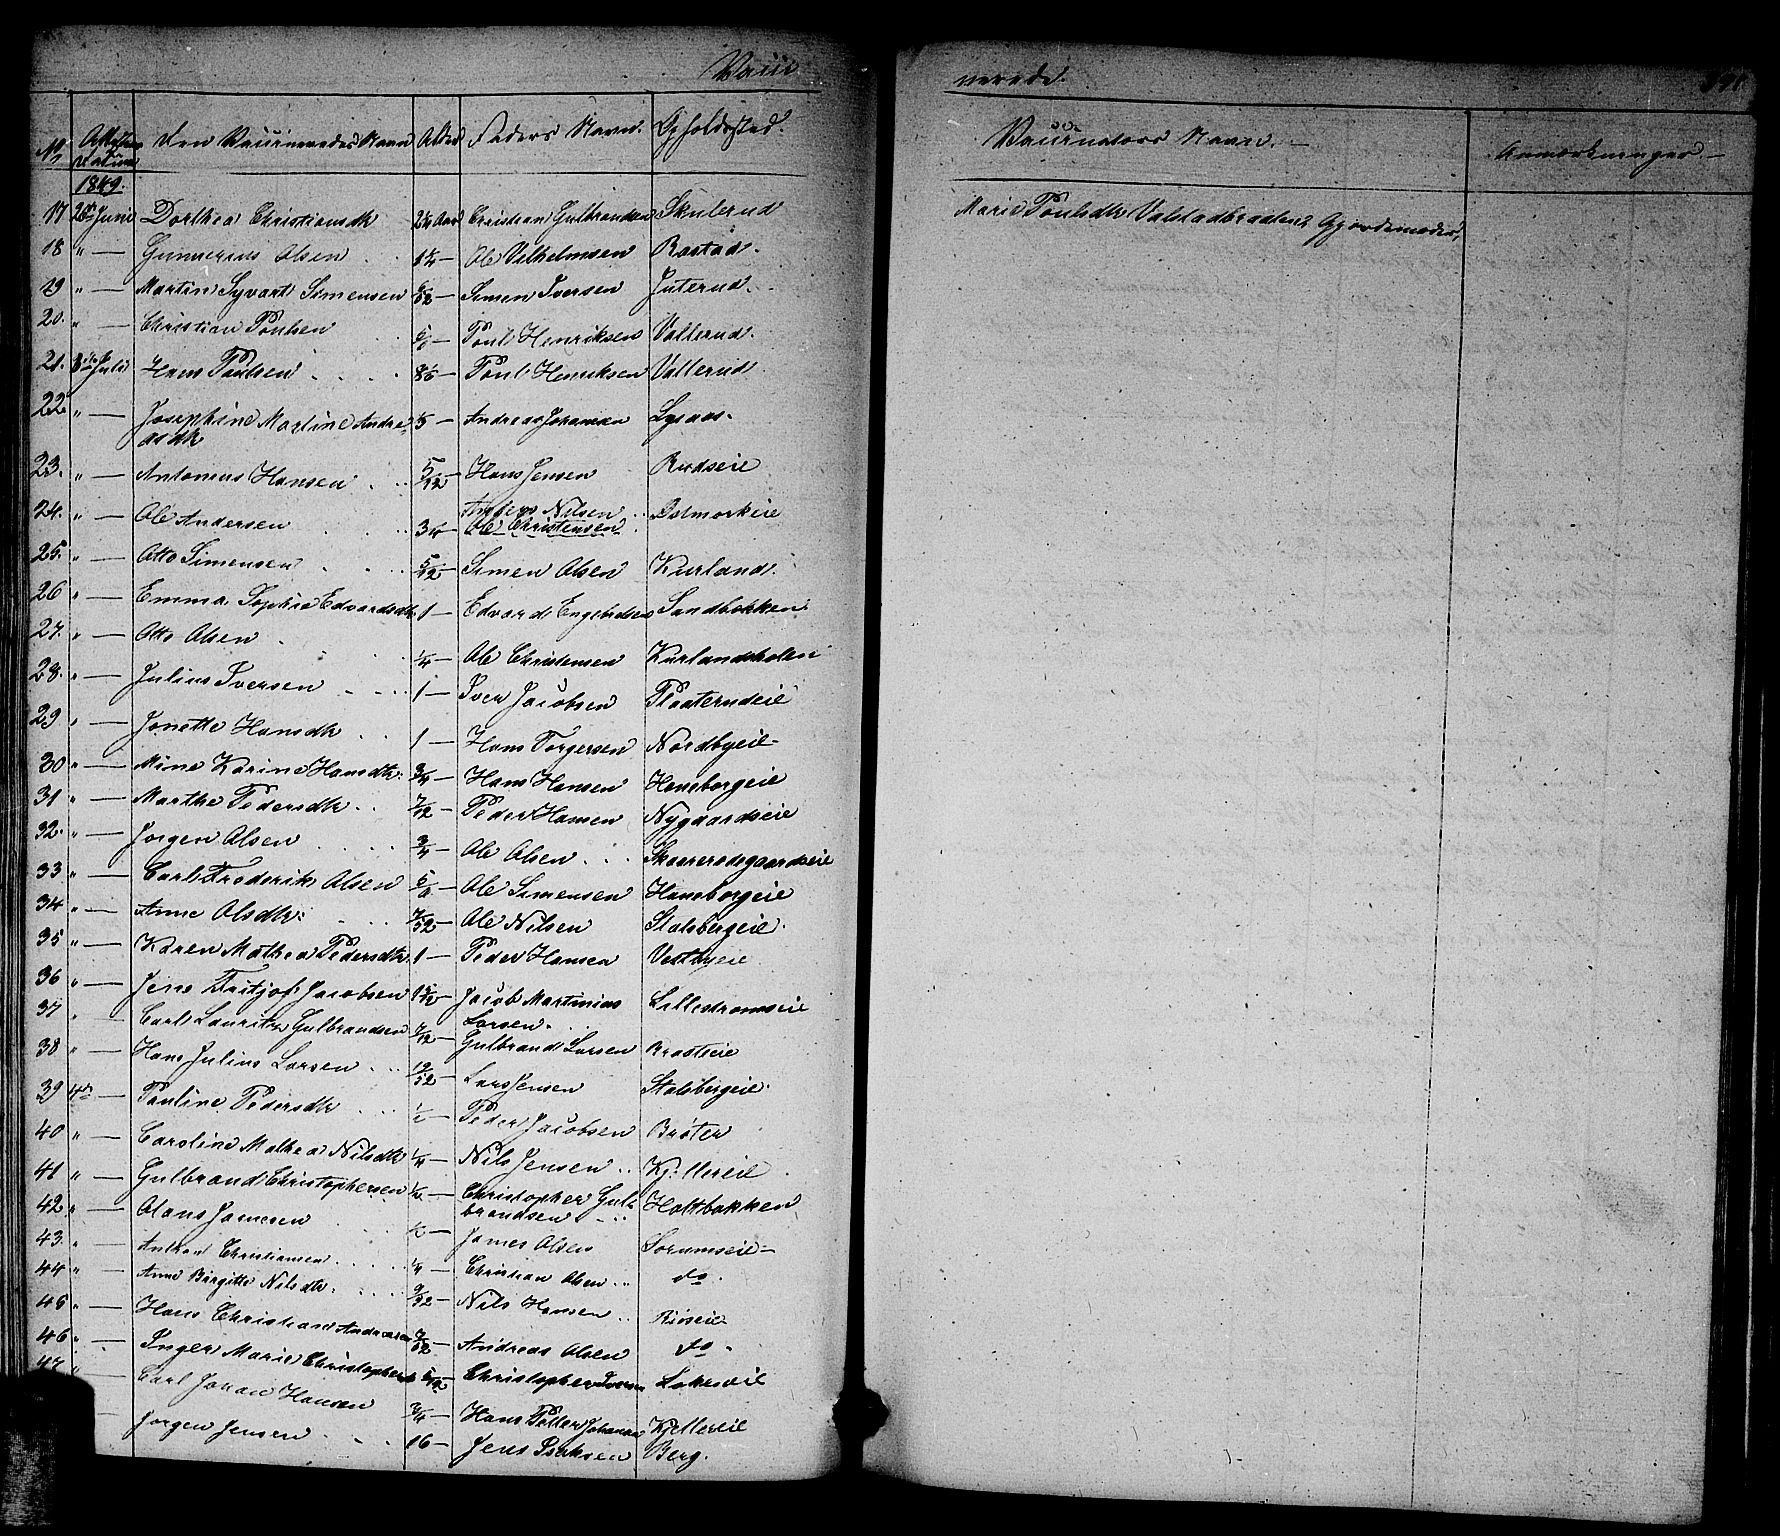 Vacci
No Attestens Datum Den Vaccineredes Navn Alder Faders Navn. Opholdssted.
1849.
17 28de Juni Dorthea Christiansdtr 2 1/4 Aar Christian Gulbrandsen Skulerud
18 " — Gunnerius Olsen 1 1/4 — Ole Vilhelmsen Rastad.
19 " — Martin Syvart Simensen Simen Iversen Juterud.
20. " — Christian Poulsen Poul Henriksen Vallerud.
21. Juli Hans Poulsen Poul Henriksen Vallerud.
22 " — Josephine Martine Andre
asdtr Andreas Johansen Lysaas.
23. " — Antonius Hansen 5/12 — Hans Jensen Rudseie
24. " — Ole Andersen 3/4 — Anders Nilsen Ostmorkeie
Ole Christensen
25. " — Otto Simensen 5/12 — Simen Olsen Kurland.
26 " — Emma Sophie Edvardsdtr 1 — Edvard Engebretsen Sandbakken
27. " — Otto Olsen 1/4 — Ole Christensen Kurlandsholen
28. " — Julius Iversen 1 — Iver Jacobsen Plaaterudeie
29 " — Jonette Hansdtr 1 — Hans Torgersen Nordbyeie
30 " — Mine Karine Hansdtr. 3/4 — Hans Hansen Haneborgeie
31 " — Marthe Pedersdtr 7/12 — Peder Hansen Nygaardseie
32. " — Jorgen Olsen 3/4 — Ole Olsen Skaareradsgaardseie
33 " — Carl Frederik Olsen Ole Simensen Haneborgeie
34 " — Anne Olsdtr. 7/52 — Ole Nilsen Stalsbergeie.
35 " — Karen Mathea Pedersdtr. 1 — Peder Hansen Vestbyeie
36 " — Jens Fritjof Jacobsen Jacob Martinius
Larsen. Lillestromseie
37 " — Carl Lauritz Gulbrandsen 7/12 — Gulbrand Larsen Braateeie
38 " — Hans Julius Larsen Lars Jensen Stalsbergeie.
39 4de — Pauline Pedersdtr 1/2 — Peder Jacobsen Brøter
40 " — Caroline Mathea Nilsdtr 1/4 — Nils Jensen Kjellereie
41 " — Gulbrand Christophersen 1/2 — Christopher Gul-
brandsen Holtbakken
42 " — Olaus Jamesen 1/2 — James Olsen Sorumseie
43. " — Anton Christiansen 1/4 — Christian Olsen do.
44 " — Anne Birgitte Nilsdtr. 9/52 — Nils Hansen Riiseie
45 " — Hans Christian Andreasen 7/52 — Andreas Olsen do.
46 " — Inger Marie Christophersd 5/12 — Christopher Iversen Lokeseie
47 Carl Johan Hansen 3/4 — Hans Petter Johansen Kjellereie
Jorgen Jensen 16 — Jens Isaksen Berg.
nerede.
Vaccinators Navn. — Anmærkninger. —
Marie Poulsdtr Valstadbraaten, Gjordemoder,